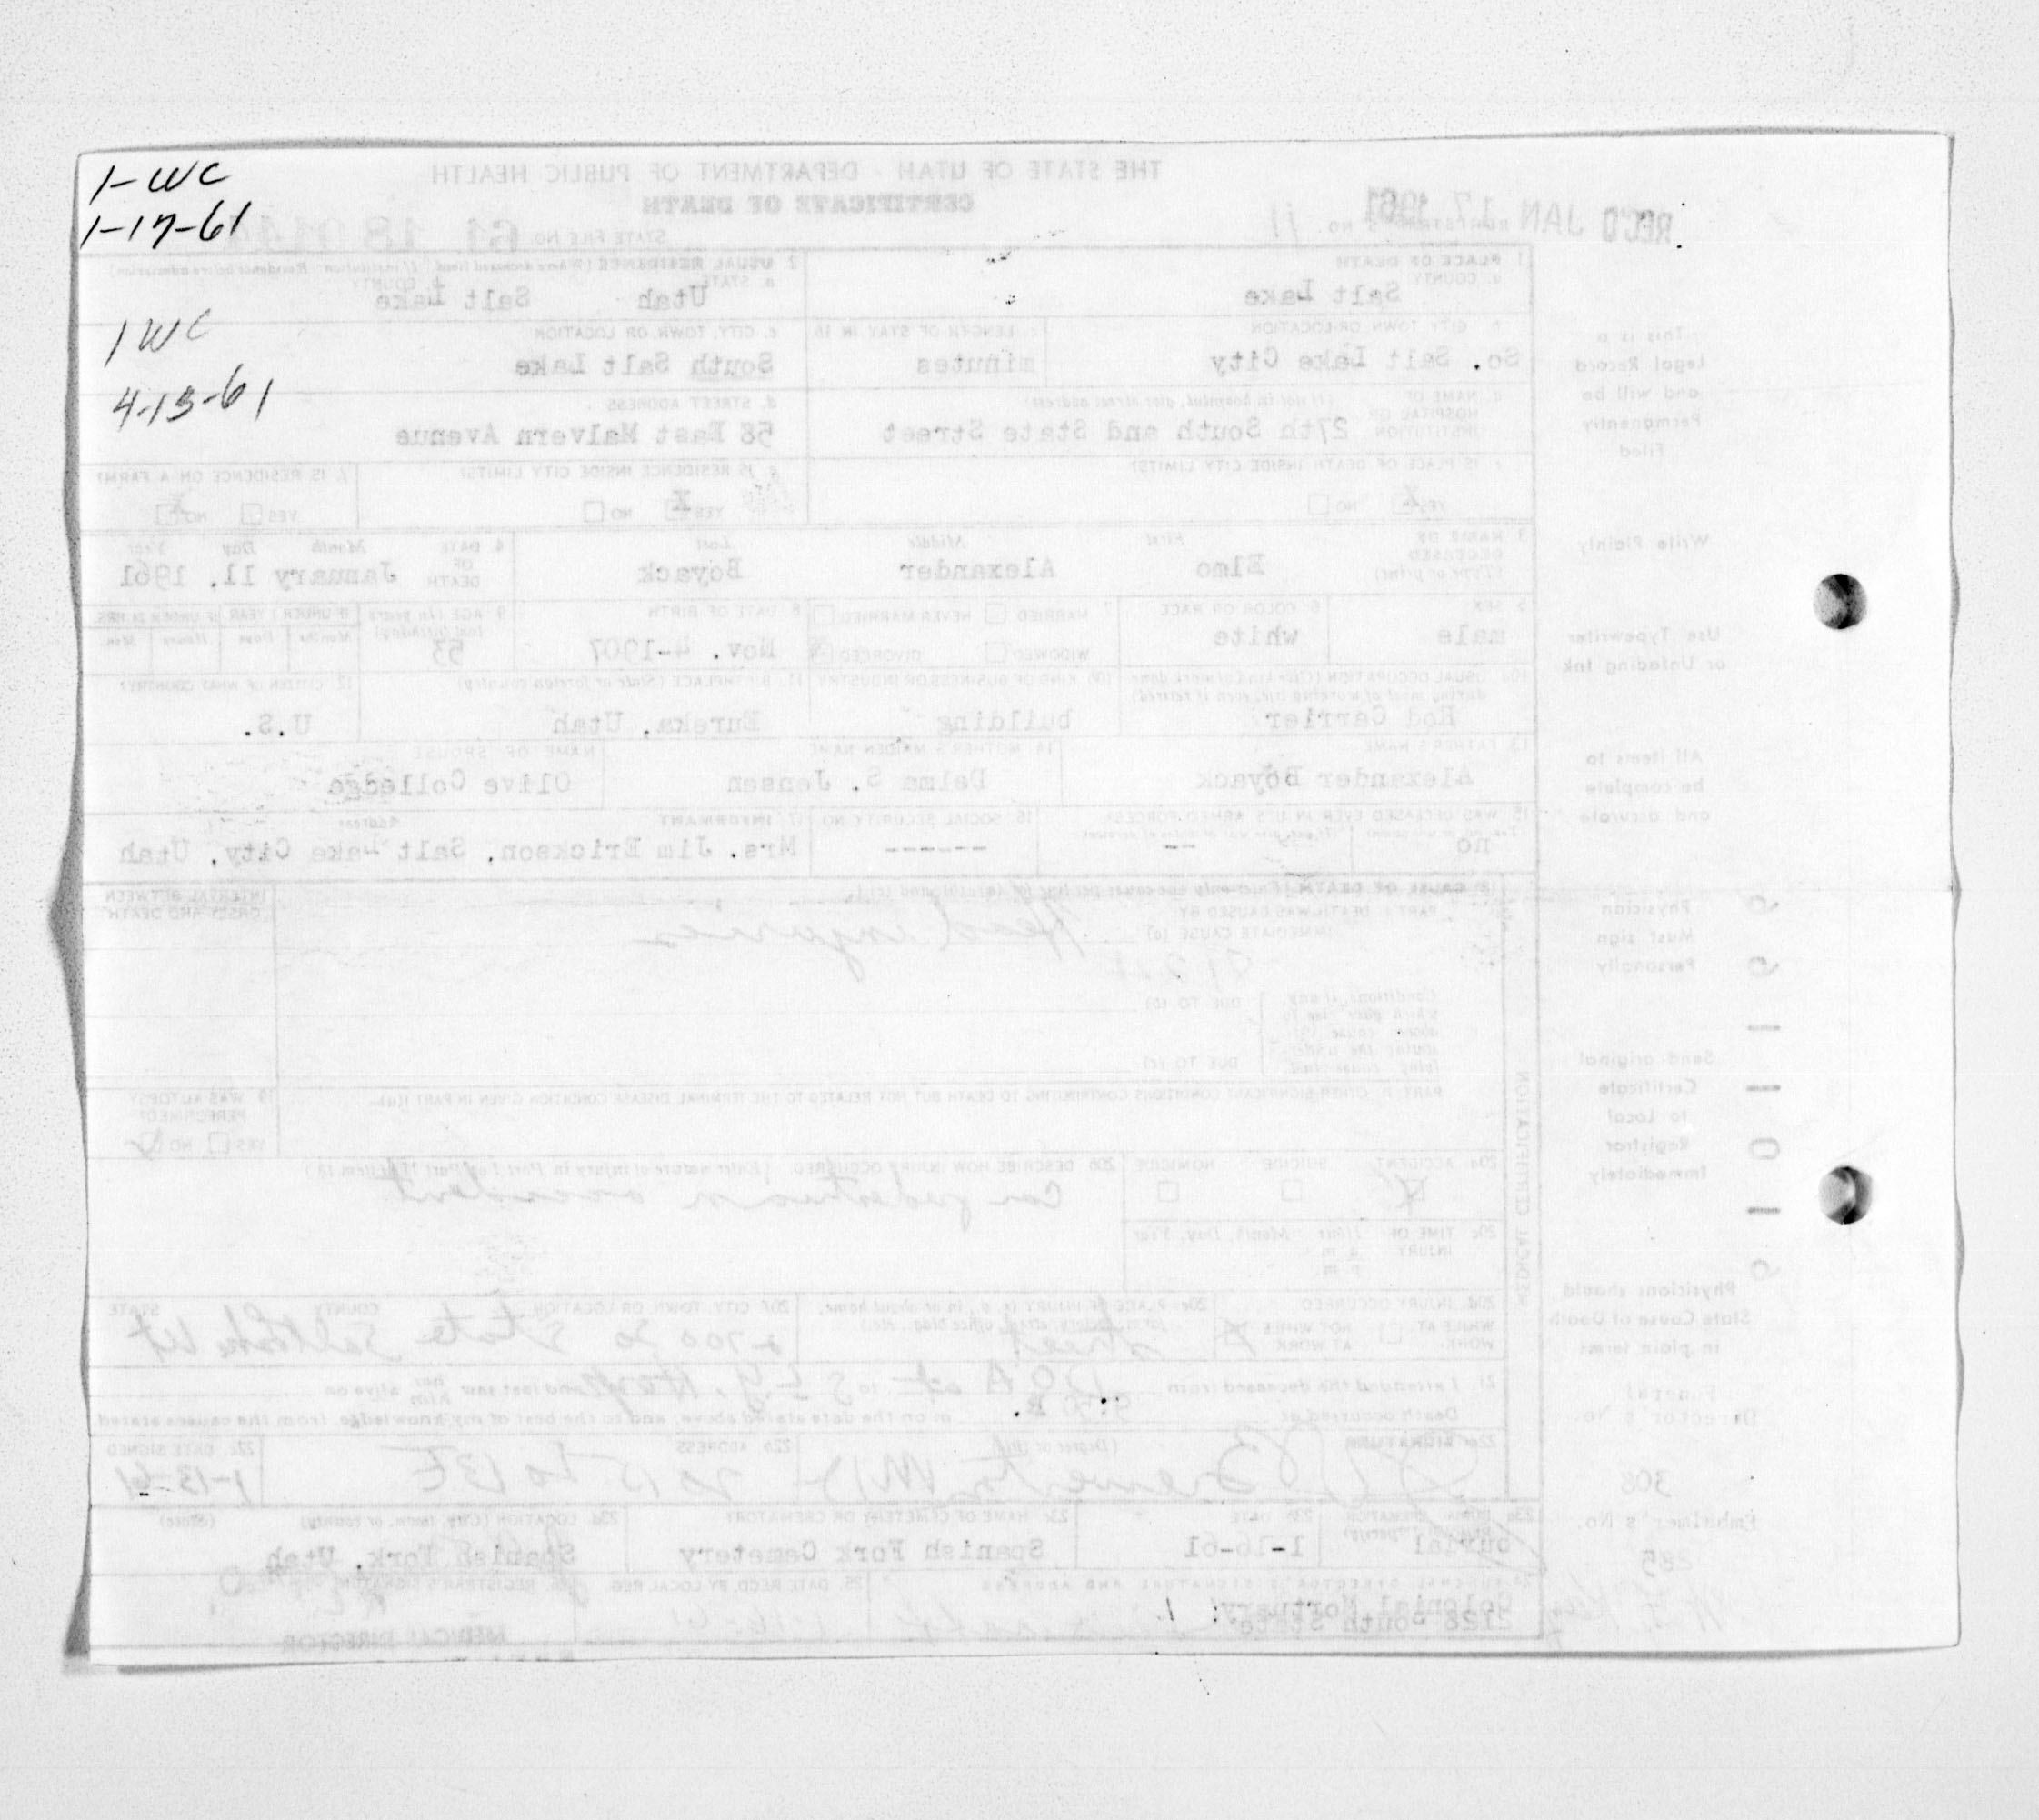 1-WC
1-17-61
1WC
4-13-61
THE STATE OF UTAH - DEPARTMENT OF PUBLIC HEALTH
CERTIFICATE OF DEATH
REC'D JAN 17 1961
REGISTRAR'S NO. 11
STATE FILE NO. 61 18
This is a
Legal Record
and will be
Permanently
Filed
Write Plainly
Use Typewriter
or Unfading Ink
All items to
be complete
and accurate
Physician
Must sign
Personally
Send original
Certificate
to Local
Registrar
Immediately
Physicians should
State Cause of Death
in plain terms
Funeral
Director's No.
308
Embalmer's No.
885
1. PLACE OF DEATH
a. COUNTY
Salt Lake
2. USUAL RESIDENCE (Where deceased lived. If institution: Residence before admission)
a. STATE Utah b. COUNTY Salt Lake
b. CITY TOWN OR LOCATION
So. Salt Lake City
c. LENGTH OF STAY IN 1b
minutes
c. CITY, TOWN, OR LOCATION
South Salt Lake
d. NAME OF HOSPITAL OR INSTITUTION (If not in hospital, give street address)
27th South and State Street
d. STREET ADDRESS
58 East Malvern Avenue
e. IS PLACE OF DEATH INSIDE CITY LIMITS?
YES X NO
e. IS RESIDENCE INSIDE CITY LIMITS?
YES X NO
f. IS RESIDENCE ON A FARM?
YES NO X
3. NAME OF DECEASED (Type or print) First Middle Last
Elmo Alexander Boyack
4. DATE OF DEATH Month Day Year
January 11, 1961
5. SEX
male
6. COLOR OR RACE
white
7. MARRIED NEVER MARRIED
WIDOWED DIVORCED X
8. DATE OF BIRTH
Nov. 4-1907
9. AGE (In years last birthday)
53
IF UNDER 1 YEAR IF UNDER 24 HRS.
Months Days Hours Min.
10a. USUAL OCCUPATION (Give kind of work done during most of working life, even if retired)
Hod Carrier
10b. KIND OF BUSINESS OR INDUSTRY
building
11. BIRTHPLACE (State or foreign country)
Eureka, Utah
12. CITIZEN OF WHAT COUNTRY?
U.S.
13. FATHER'S NAME
Alexander Boyack
14. MOTHER'S MAIDEN NAME
Delma S. Jensen
NAME OF SPOUSE
Olive Colledge
15. WAS DECEASED EVER IN U.S. ARMED FORCES?
(Yes, no, or unknown) (If yes, give war or dates of service)
no --
16. SOCIAL SECURITY NO.
------
17. INFORMANT Address
Mrs. Jim Erickson, Salt Lake City, Utah
MEDICAL CERTIFICATION
18. CAUSE OF DEATH (Enter only one cause per line for (a), (b), and (c).)
PART I. DEATH WAS CAUSED BY
IMMEDIATE CAUSE (a) Head injuries
INTERVAL BETWEEN
ONSET AND DEATH
Conditions, if any,
which gave rise to
above cause (a)
stating the under-
lying cause last
DUE TO (b)
DUE TO (c)
PART II. OTHER SIGNIFICANT CONDITIONS CONTRIBUTING TO DEATH BUT NOT RELATED TO THE TERMINAL DISEASE CONDITION GIVEN IN PART I(a)
19. WAS AUTOPSY
PERFORMED?
YES NO
20a. ACCIDENT SUICIDE HOMICIDE
20b. DESCRIBE HOW INJURY OCCURRED. (Enter nature of injury in Part I or Part II of item 18.)
Car pedestrian accident
20c. TIME OF INJURY Hour Month, Day, Year
a.m.
p.m.
20d. INJURY OCCURRED
WHILE AT WORK NOT WHILE AT WORK X
20e. PLACE OF INJURY (e.g., in or about home, farm, factory, street, office bldg., etc.)
street
20f. CITY, TOWN, OR LOCATION COUNTY STATE
2700 So State Salt Lake Ut
21. I attended the deceased from DOA at to S L G. Hosp and last saw her him alive on
Death occurred at m on the date stated above, and to the best of my knowledge, from the causes stated.
22a. SIGNATURE (Degree or title)
22b. ADDRESS
2015 So 13 E
22c. DATE SIGNED
1-13-61
23a. BURIAL, CREMATION, REMOVAL (Specify)
burial
23b. DATE
1-16-61
23c. NAME OF CEMETERY OR CREMATORY
Spanish Fork Cemetery
23d. LOCATION (City, town, or county) (State)
Spanish Fork, Utah
24. FUNERAL DIRECTOR'S SIGNATURE AND ADDRESS
Colonial Mortuary;
2128 South State.
25. DATE RECD. BY LOCAL REG.
26. REGISTRAR'S SIGNATURE
MEDICAL DIRECTOR